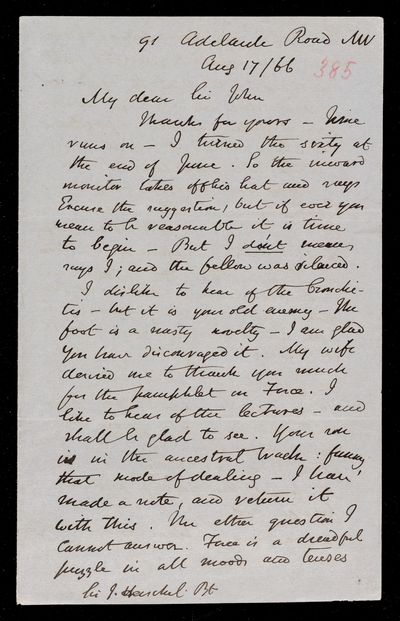 91 Adelaide Road NW
Aug 17/66
385
My dear Sir John
Thanks for yours – Time
runs on – I turned the sixty at
the end of June. So the inward
monitor takes off his hat and says
Excuse the suggestion, but if ever you
mean to be reasonable it is time
to begin – But I don't mean,
says I; and the fellow was silenced.
I dislike to hear of the bronchi-
tis – but it is your old enemy – The
foot is a nasty novelty – I am glad
you have discouraged it. My wife
desired me to thank you much
for the pamphlet on Force. I
like to hear of the lectures – and
shall be glad to see. Your son
is in the ancestral track: funny
that mode of dealing – I have
made a note, and return it
with this. The other question I
cannot answer. Force is a dreadful
puzzle in all moods and tenses
Sir J. Herschel Bt